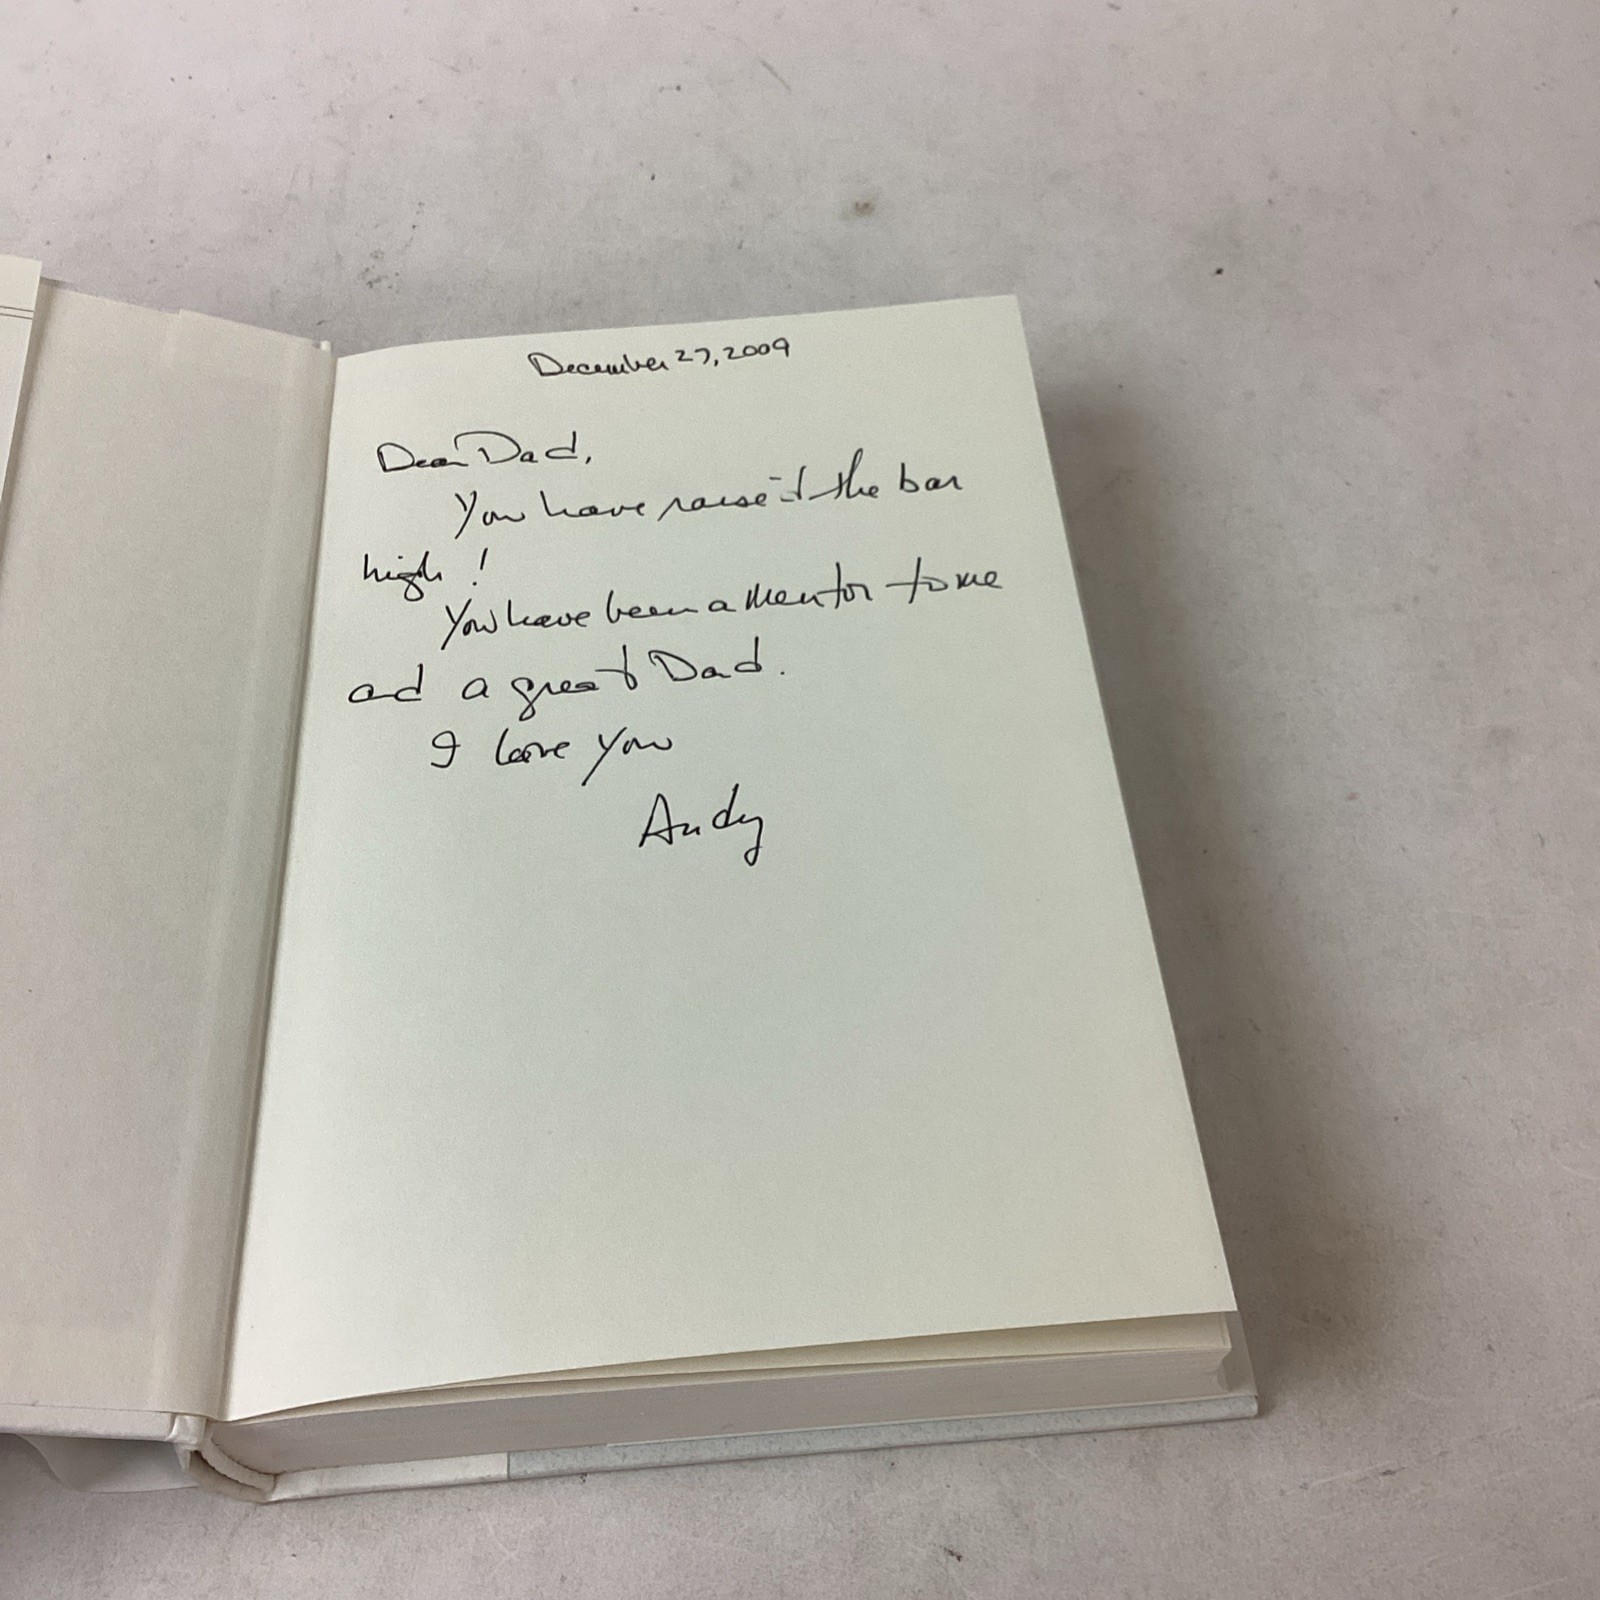 December 27, 2009
Dear Dad,
You have raised the bar
high!
You have been a mentor to me
and a great Dad.
I love you
Andy